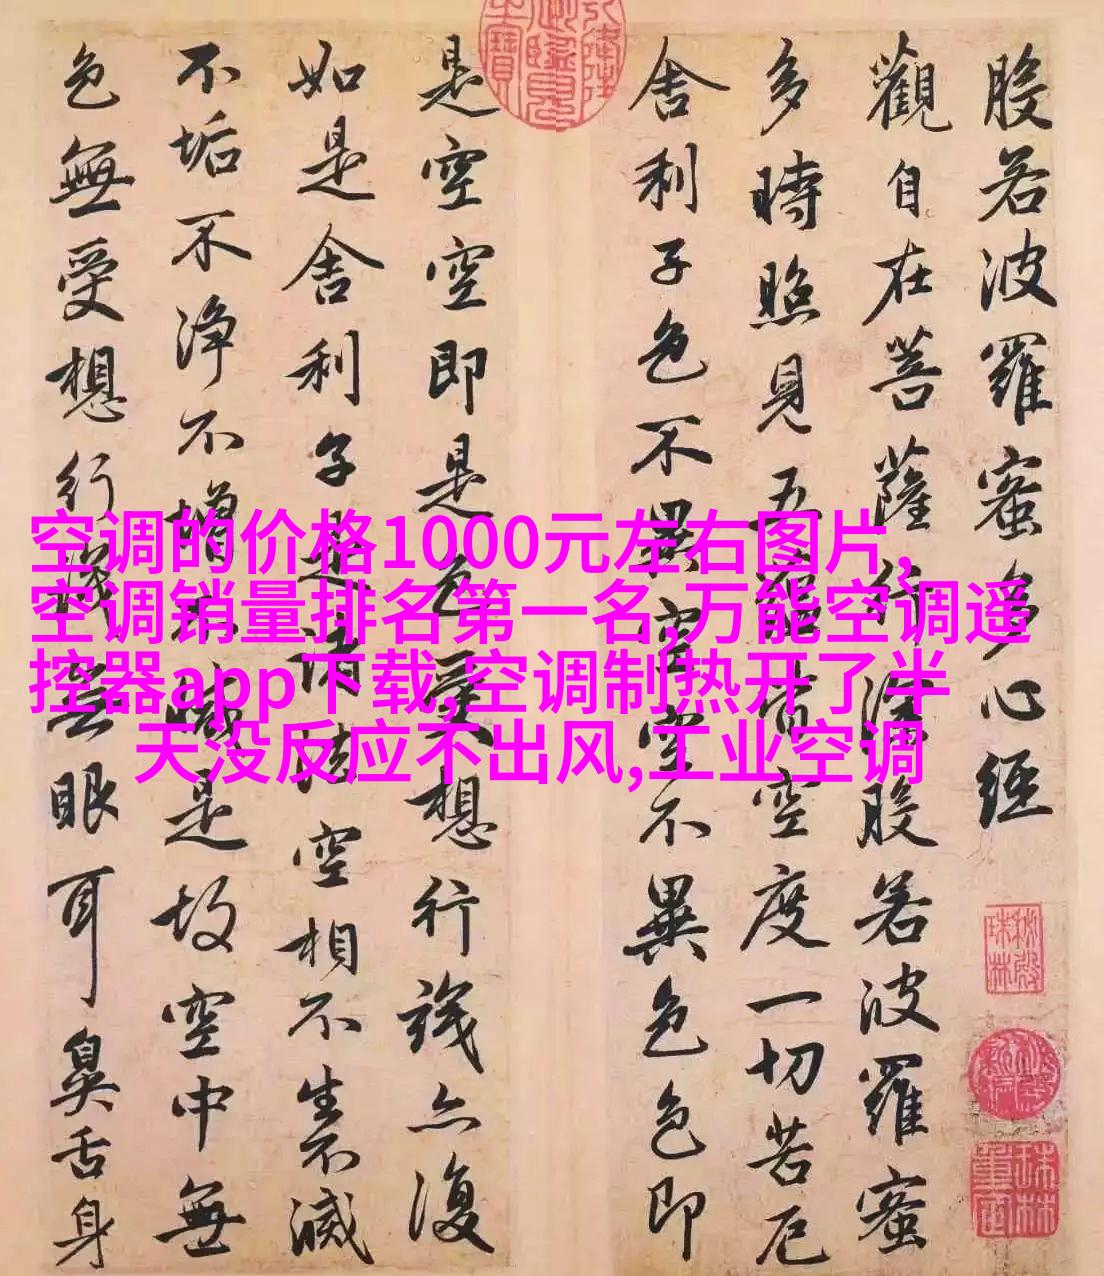 般若波羅蜜多心經
觀自在菩薩行深般若波羅蜜
多時照見五蘊皆空度一切苦厄
舍利子色不異空空不異色色即
是空空即是色受想行識亦復
如是舍利子是諸法空相不生不滅
不垢不淨不增不減是故空中無
色無受想行識無眼耳鼻舌身
空调的价格1000元左右图片,
空调销量排名第一名,万能空调遥
控器app下载,空调制热开了半
天没反应不出风,工业空调